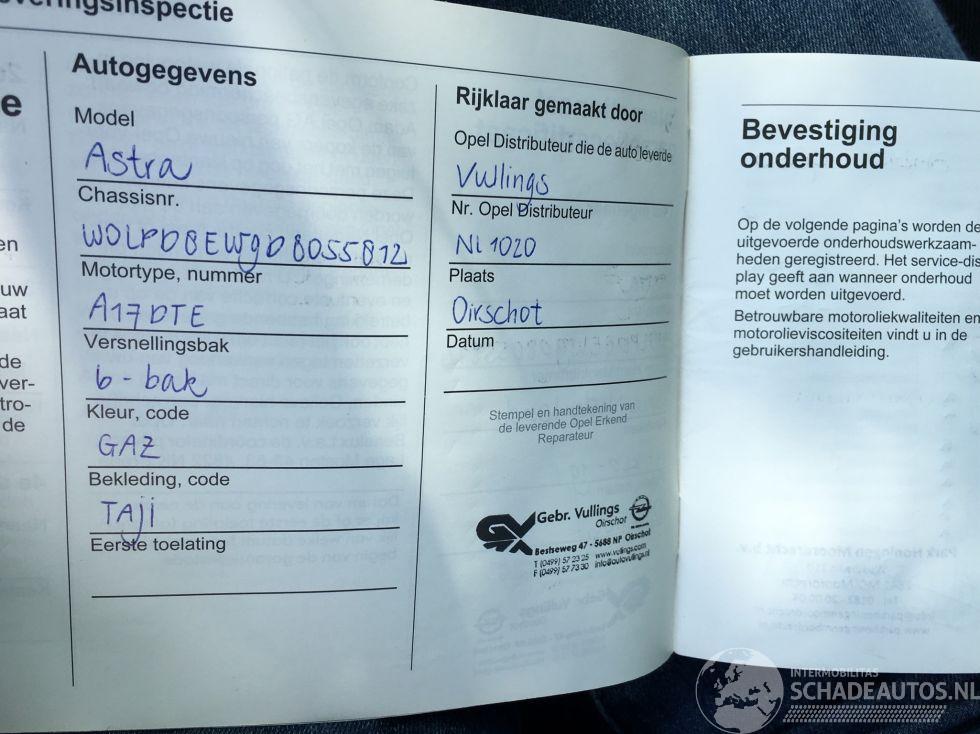 everingsinspectie
e
en
uw
aat
de
ver-
tro-
de
Autogegevens
Model
Astra
Chassisnr.
W0LPD8EWgD8055812
Motortype, nummer
A17DTE
Versnellingsbak
6-bak
Kleur, code
GAZ
Bekleding, code
TAji
Eerste toelating
Rijklaar gemaakt door
Opel Distributeur die de auto leverde
Vullings
Nr. Opel Distributeur
NL 1020
Plaats
Oirschot
Datum
Stempel en handtekening van
de leverende Opel Erkend
Reparateur
Gebr. Vullings
Oirschot
Bestseweg 47 - 5688 NP Oirschot
T (0499) 57 23 25 www.vullings.com
F (0499) 57 73 30 info@autovullings.nl
Bevestiging
onderhoud
Op de volgende pagina's worden de
uitgevoerde onderhoudswerkzaam-
heden geregistreerd. Het service-dis
play geeft aan wanneer onderhoud
moet worden uitgevoerd.
Betrouwbare motoroliekwaliteiten en
motorolieviscositeiten vindt u in de
gebruikershandleiding.
INTERMOBILITAS
SCHADEAUTOS.NL